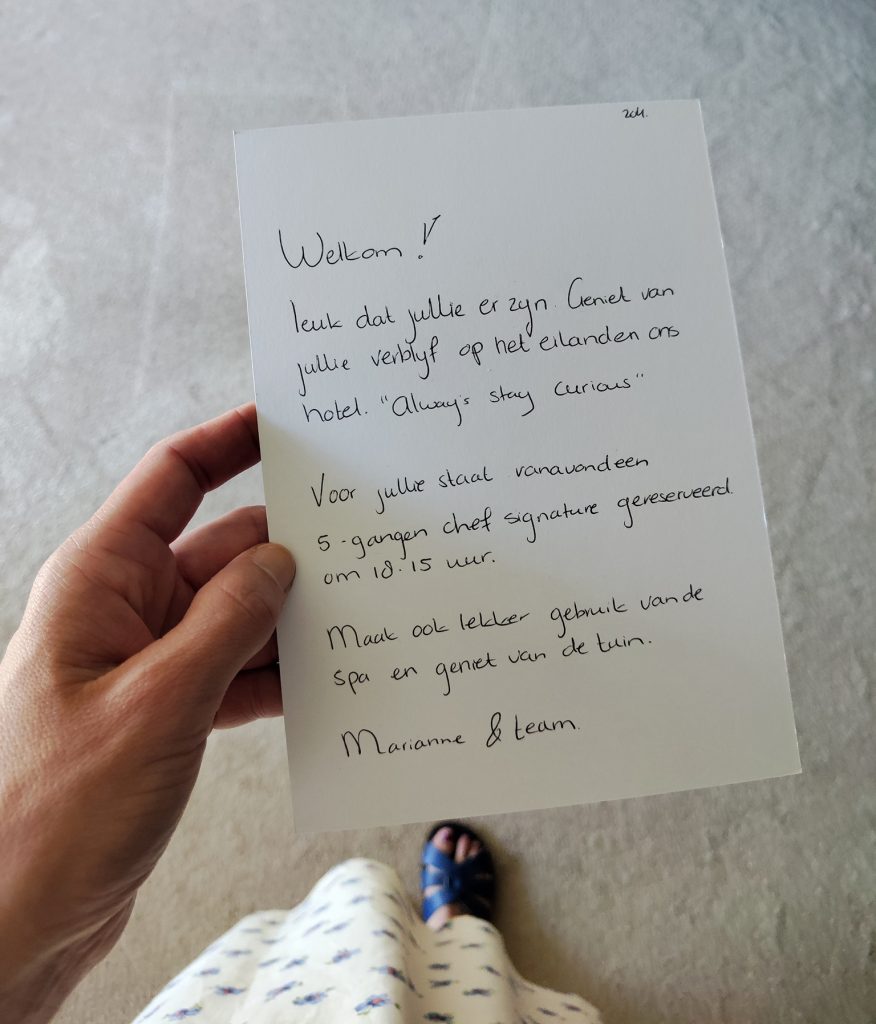 204.
Welkom!
leuk dat jullie er zijn. Geniet van
jullie verblijf op het eiland en ons
hotel. "Always stay curious"
Voor jullie staat vanavond een
5-gangen chef signature gereserveerd.
om 18.15 uur.
Maak ook lekker gebruik van de
spa en geniet van de tuin.
Marianne & team.